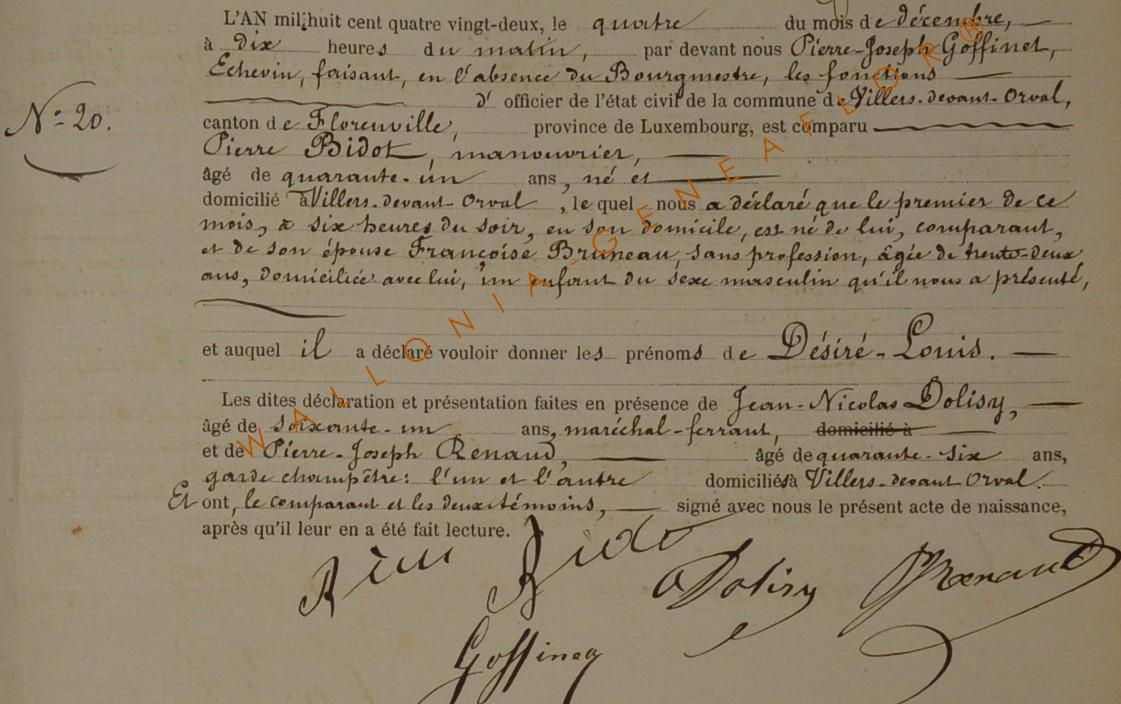 L'AN mil huit cent quatre vingt-deux, le quatre du mois de décembre,
à dix heures du matin, par devant nous Pierre-Joseph Goffinet,
Echevin, faisant, en l'absence du Bourgmestre, les fonctions
d'officier de l'état civil de la commune de Villers-devant-Orval,
N° 20.
canton de Florenville, province de Luxembourg, est comparu
Pierre Bidot, manouvrier,
âgé de quarante-un ans, né et
domicilié à Villers-devant Orval, le quel nous a déclaré que le premier de ce
mois, à six heures du soir, en son domicile, est né de lui, comparant,
et de son épouse Françoise Bruneau, sans profession, âgée de trente-deux
ans, domiciliée avec lui, un enfant du sexe masculin qu'il nous a présenté,
et auquel il a déclaré vouloir donner les prénoms de Désiré-Louis.
Les dites déclaration et présentation faites en présence de Jean-Nicolas Dolisy,
âgé de soixante-un ans, maréchal-ferrant, domicilié à
et de Pierre-Joseph Renaud, âgé de quarante-six ans,
garde champêtre: l'un et l'autre domiciliés à Villers-devant Orval.
Et ont, le comparant et les deux témoins, signé avec nous le présent acte de naissance,
après qu'il leur en a été fait lecture.
Bido Dolisy Renaud
Goffinet
WALLONIA-GENEAFLORE®